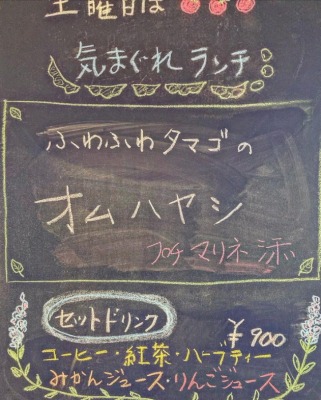 土曜日は
気まぐれランチ
ふわふわタマゴの
オムハヤシ
プチマリネ添
セットドリンク
￥900
コーヒー・紅茶・ハーブティー
みかんジュース・りんごジュース